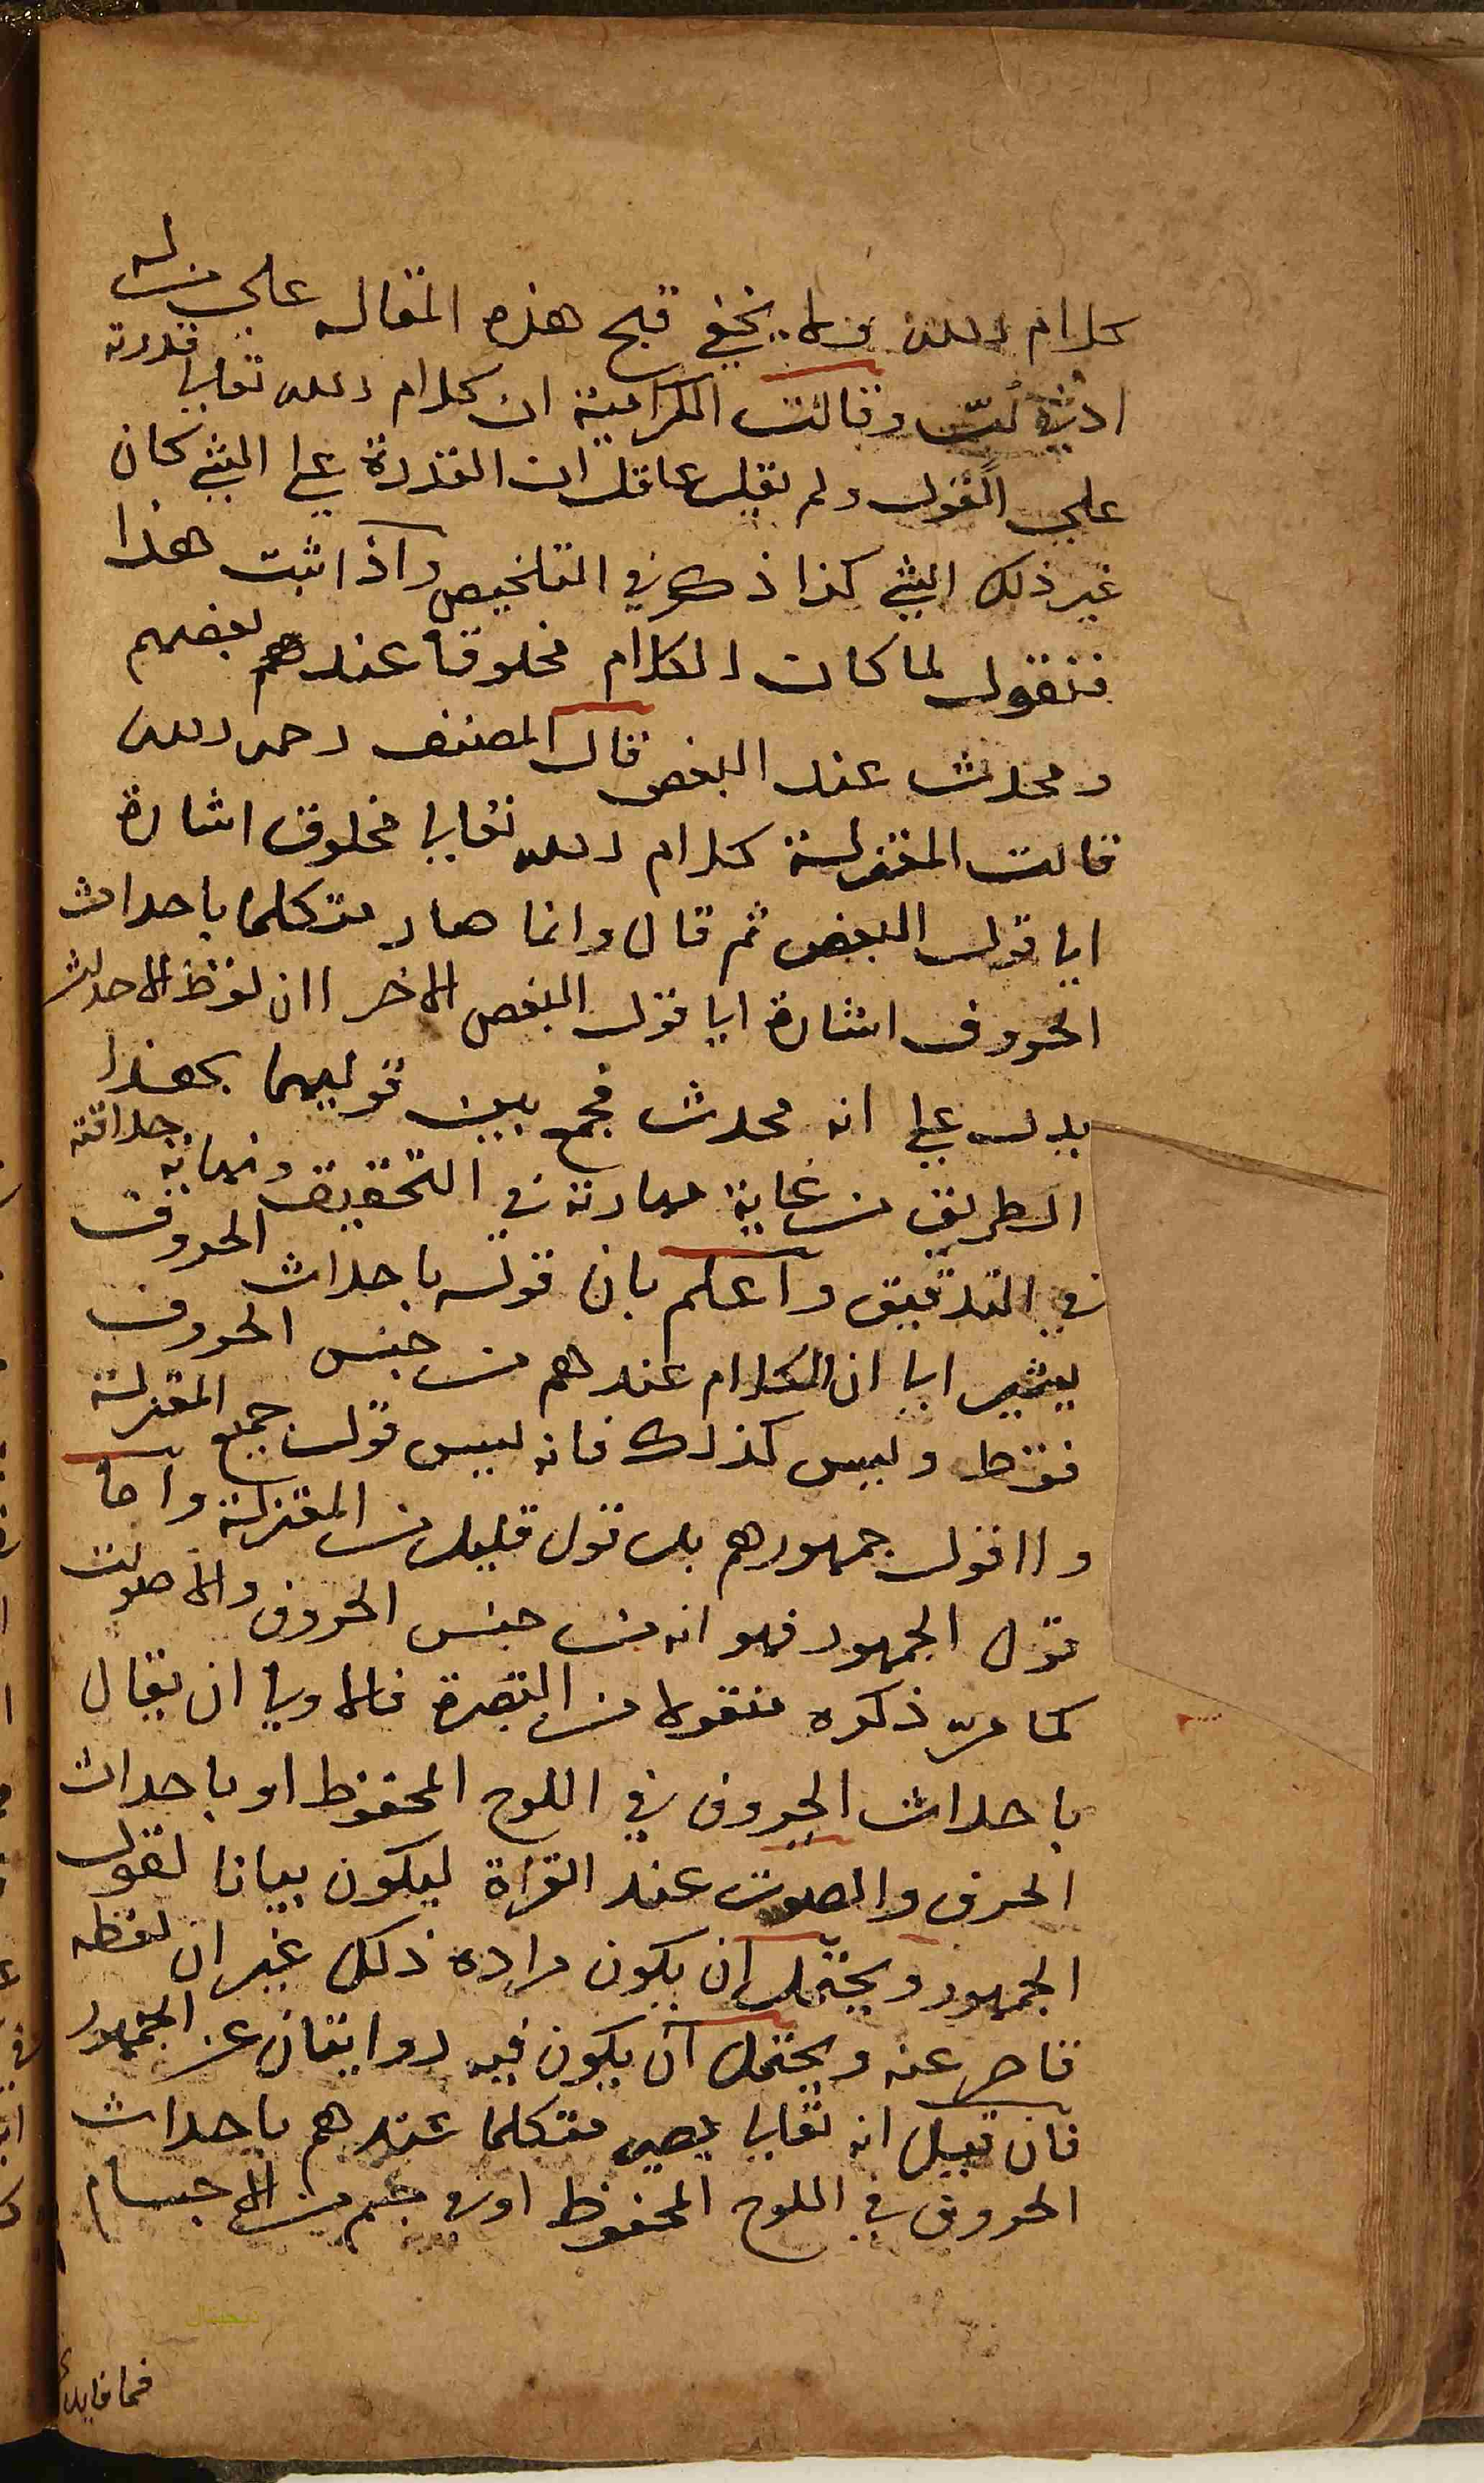 كلام الله ولا يخفي قبح هذه المقاله علي من له
ادني لب وقالت الكرامية ان كلام الله تعالي قدرته
علي القول ولم يقل عاقل ان القدرة علي الشي كان
غير ذلك الشي كذا ذكر في التلخيص واذا ثبت هذا
فنقول لما كان الكلام مخلوقا عندهم بعضهم
ومحدث عند البعض قال المصنف رحمه الله
قالت المعتزلة كلام الله تعالي مخلوق اشارة
الي قول البعض ثم قال وانما صار متكلما باحداث
الحروف اشارة الي قول البعض الاخر اذ لفظ الاحداث
يدل علي انه محدث فجمع بين قوليهما بهذا
الطريق من غاية مهارته في التحقيق ونهاية حذاقته
في التدقيق واعلم بان قوله باحداث الحروف
يشير الي ان الكلام عندهم من جنس الحروف
فقط وليس كذلك فانه ليس قول جميع المعتزلة
ولا قول جمهورهم بل قول قليل من المعتزلة واما
قول الجمهور فهو انه من جنس الحروف والاصوات
كما مر ذكره منقولا من التبصرة فالاولي ان يقال
باحداث الحروف في اللوح المحفوظ او باحداث
الحرف والصوت عند القراة ليكون بيانا لقول
الجمهور ويحتمل ان يكون مراده ذلك غير ان لفظه
قاصر عنه ويحتمل ان يكون فيه روايتان عن الجمهور
فان قيل انه تعالي يصير متكلما عندهم باحداث
الحروف في اللوح المحفوظ او في جسم من الاجسام
فما فايدة